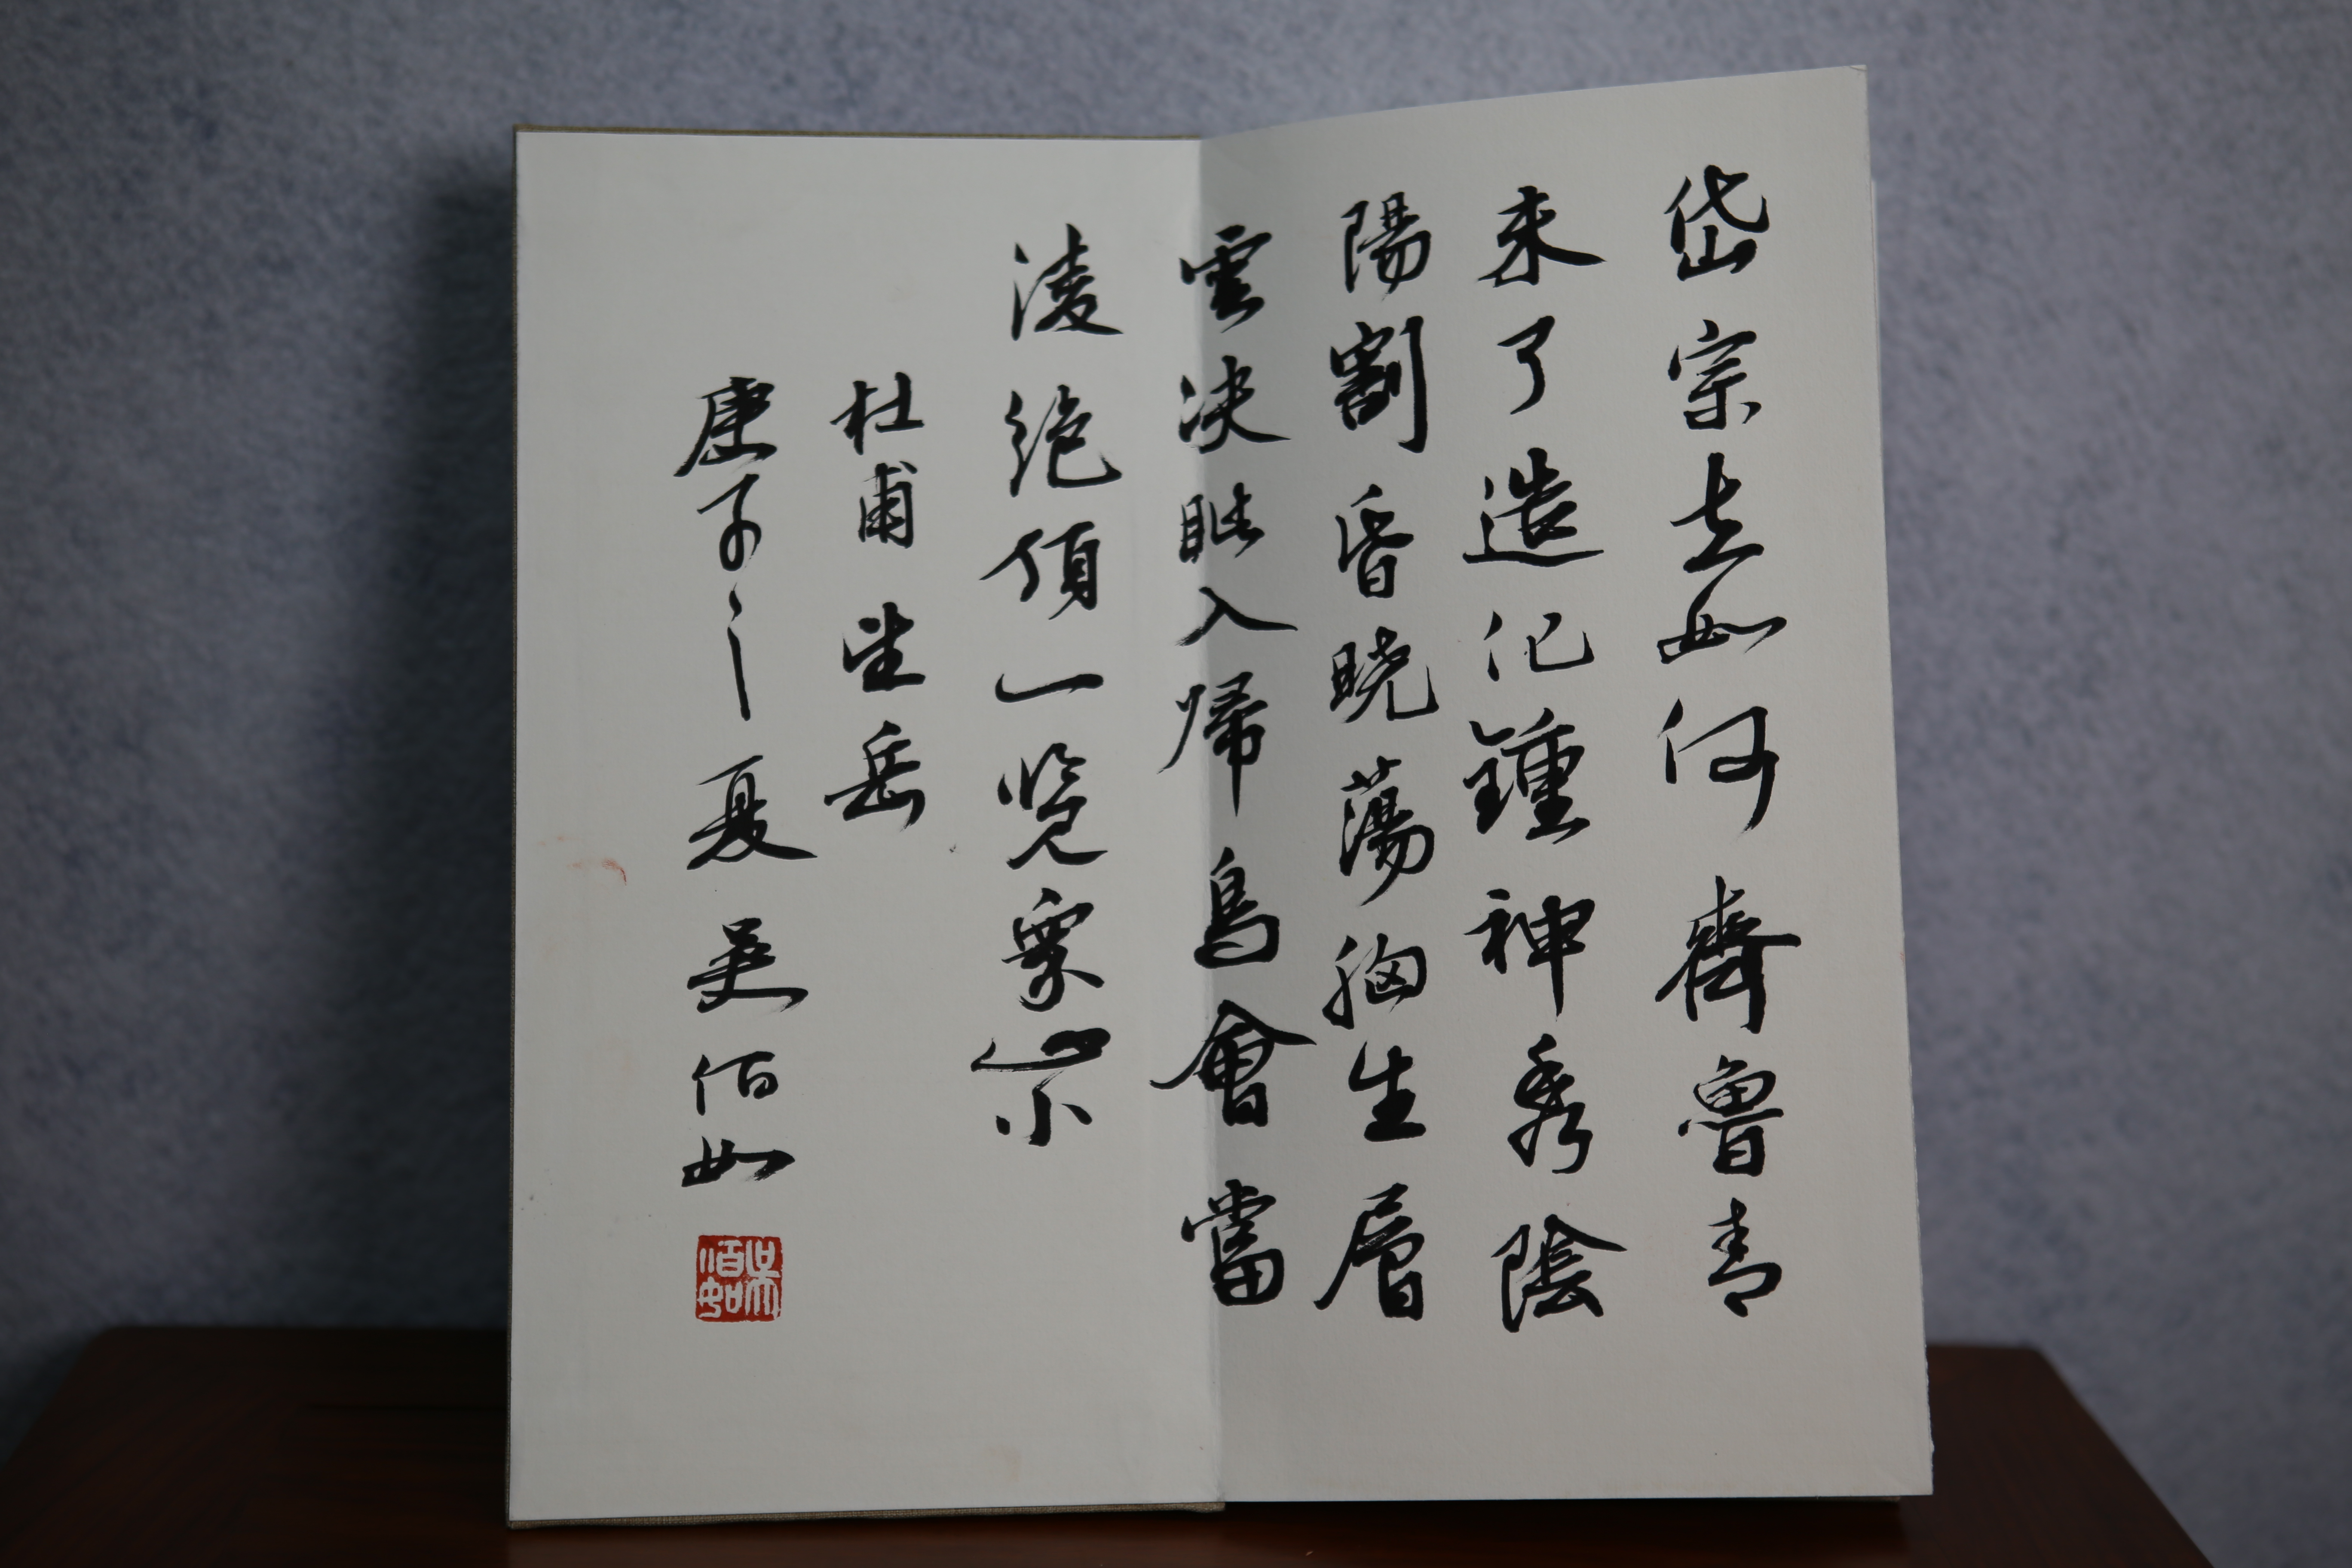 岱宗去如何齊魯青
未了造化鍾神秀陰
陽割昏曉蕩胸生層
雲決眦入歸鳥會當
淩絕頂一覽衆山小
杜甫望岳
庚子之夏吴佰如
吴佰如